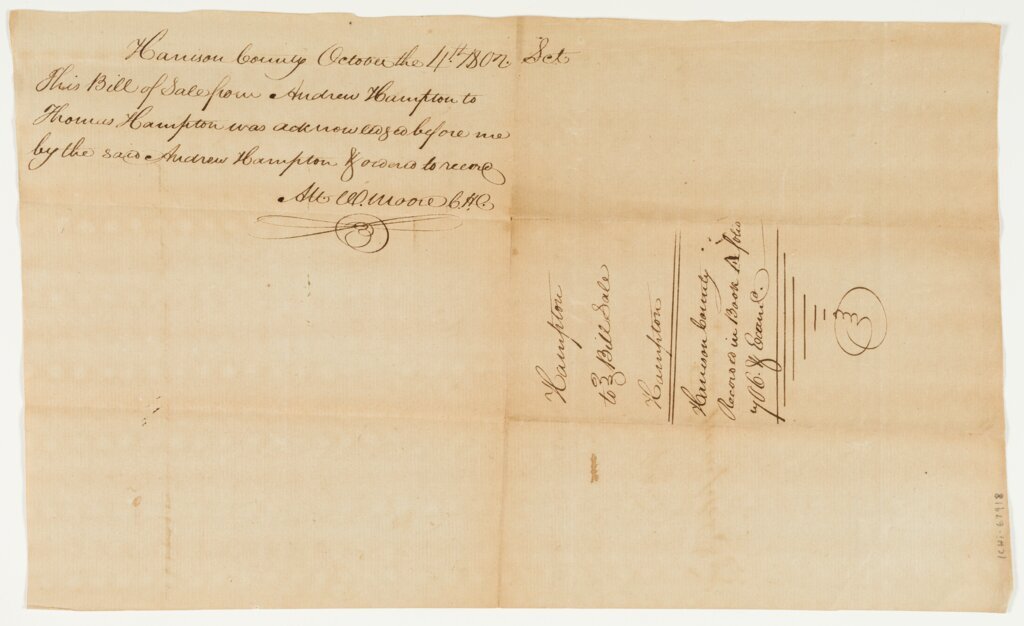 Harrison County October the 4th 1802. Sct
This Bill of Sale from Andrew Hampton to
Thomas Hampton was acknowledged before me
by the said Andrew Hampton & ordered to record
Att W. Moore C.H.C.
Hampton
to } Bill Sale
Hampton
Harrison County
Recorded in Book B folio
& Examd.
ICHi-67918